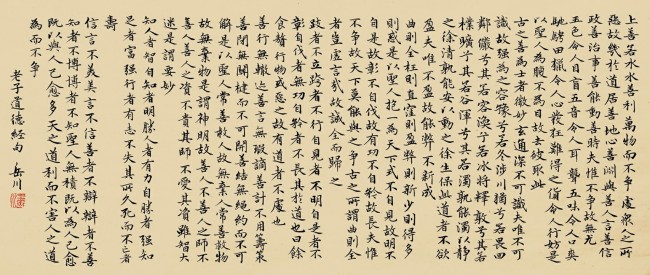 上善若水水善利萬物而不爭處衆人之所
惡故幾於道居善地心善淵與人言善信
政善治事善能動善時夫惟不爭故無尤
五色令人目盲五音令人耳聾五味令人口爽
馳騁田獵令人心發狂難得之貨令人行妨是
以聖人為腹不為目故去彼取此
古之善為士者微妙玄通深不可識夫唯不可
識故強為之容豫兮若冬涉川猶兮若畏四
鄰儼兮其若容渙兮若冰將釋敦兮其若
樸曠兮其若谷渾兮其若濁孰能濁以靜
之徐清孰能安以動之徐生保此道者不欲
盈夫唯不盈故能弊不新成
曲則全枉則直窪則盈弊則新少則得多
則惑是以聖人抱一為天下式不自見故明不
自是故彰不自伐故有功不自矜故長夫惟
不爭故天下莫能與之爭古之所謂曲則全
者豈虛言哉故誠全而歸之
跂者不立跨者不行自見者不明自是者不
彰自伐者無功自矜者不長其於道也曰餘
食贅行物或惡之故有道者不處也
善行無轍迹善言無瑕謫善計不用籌策
善閉無關楗而不可開善結無繩約而不可
解是以聖人常善救人故無棄人常善救物
故無棄物是謂神明故善人不善人之師不
善人善人之資不貴其師不愛其資雖智大
迷是謂要妙
知人者智自知者明勝人者有力自勝者強知
足者富強行者有志不失其所久死而不亡者
壽
信言不美美言不信善者不辯辯者不善
知者不博博者不知聖人無積既以為人己愈
既以與人己愈多天之道利而不害人之道
為而不爭
老子道德經句 岳川